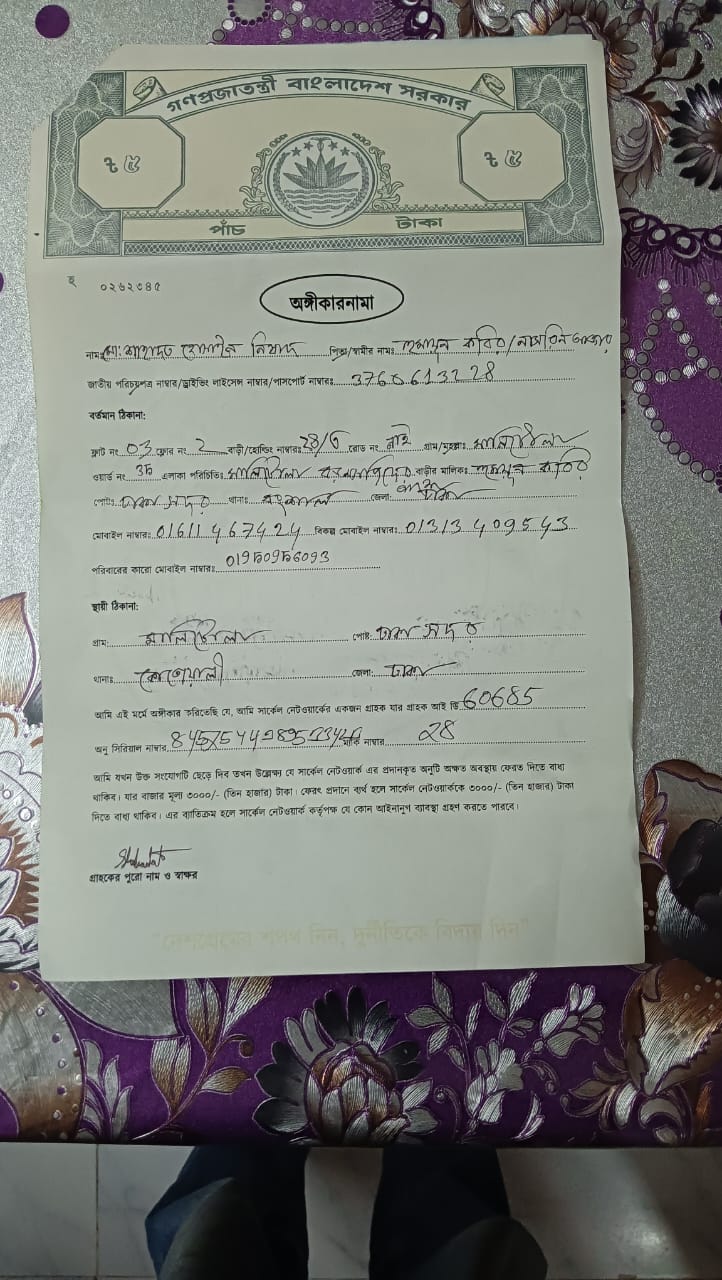 গণপ্রজাতন্ত্রী বাংলাদেশ সরকার
৳ ৫ ৳ ৫
পাঁচ টাকা
হ ০২৬২৩৪৫
অঙ্গীকারনামা
নামঃ মো: শাহাদত হোসাইন নিয়াদ পিতা/স্বামীর নামঃ হুমায়ুন কবির/নাসরিন আক্তার
জাতীয় পরিচয়পত্র নাম্বার/ড্রাইভিং লাইসেন্স নাম্বার/পাসপোর্ট নাম্বারঃ 3760613228
বর্তমান ঠিকানা:
ফ্লাট নং 03 ফ্লোর নং 2 বাড়ী/হোল্ডিং নাম্বারঃ রোড নং নাই গ্রাম/মহল্লাঃ মালিটোলা
ওয়ার্ড নং এলাকা পরিচিতিঃ মালিটোলা বাড়ীর মালিকঃ হুমায়ুন কবির
পোষ্টঃ ঢাকা সদর থানাঃ বংশাল জেলাঃ ঢাকা
মোবাইল নাম্বারঃ 01611467424 বিকল্প মোবাইল নাম্বারঃ 01313409543
পরিবারের কারো মোবাইল নাম্বারঃ
স্থায়ী ঠিকানা:
গ্রামঃ মালিটোলা পোষ্টঃ ঢাকা সদর
থানাঃ কোতোয়ালী জেলাঃ ঢাকা
আমি এই মর্মে অঙ্গীকার করিতেছি যে, আমি সার্কেল নেটওয়ার্কের একজন গ্রাহক যার গ্রাহক আই ডি 60685
অনু সিরিয়াল নাম্বার নাম্বার 28
আমি যখন উক্ত সংযোগটি ছেড়ে দিব তখন উল্লেক্ষ্য যে সার্কেল নেটওয়ার্ক এর প্রদানকৃত অনুটি অক্ষত অবস্থায় ফেরত দিতে বাধ্য
থাকিব। যার বাজার মূল্য ৩০০০/- (তিন হাজার) টাকা। ফেরৎ প্রদানে ব্যর্থ হলে সার্কেল নেটওয়ার্ককে ৩০০০/- (তিন হাজার) টাকা
দিতে বাধ্য থাকিব। এর ব্যতিক্রম হলে সার্কেল নেটওয়ার্ক কর্তৃপক্ষ যে কোন আইনানুগ ব্যবস্থা গ্রহণ করতে পারবে।
গ্রাহকের পুরো নাম ও স্বাক্ষর
"দেশপ্রেমের শপথ নিন, দুর্নীতিকে বিদায় দিন"